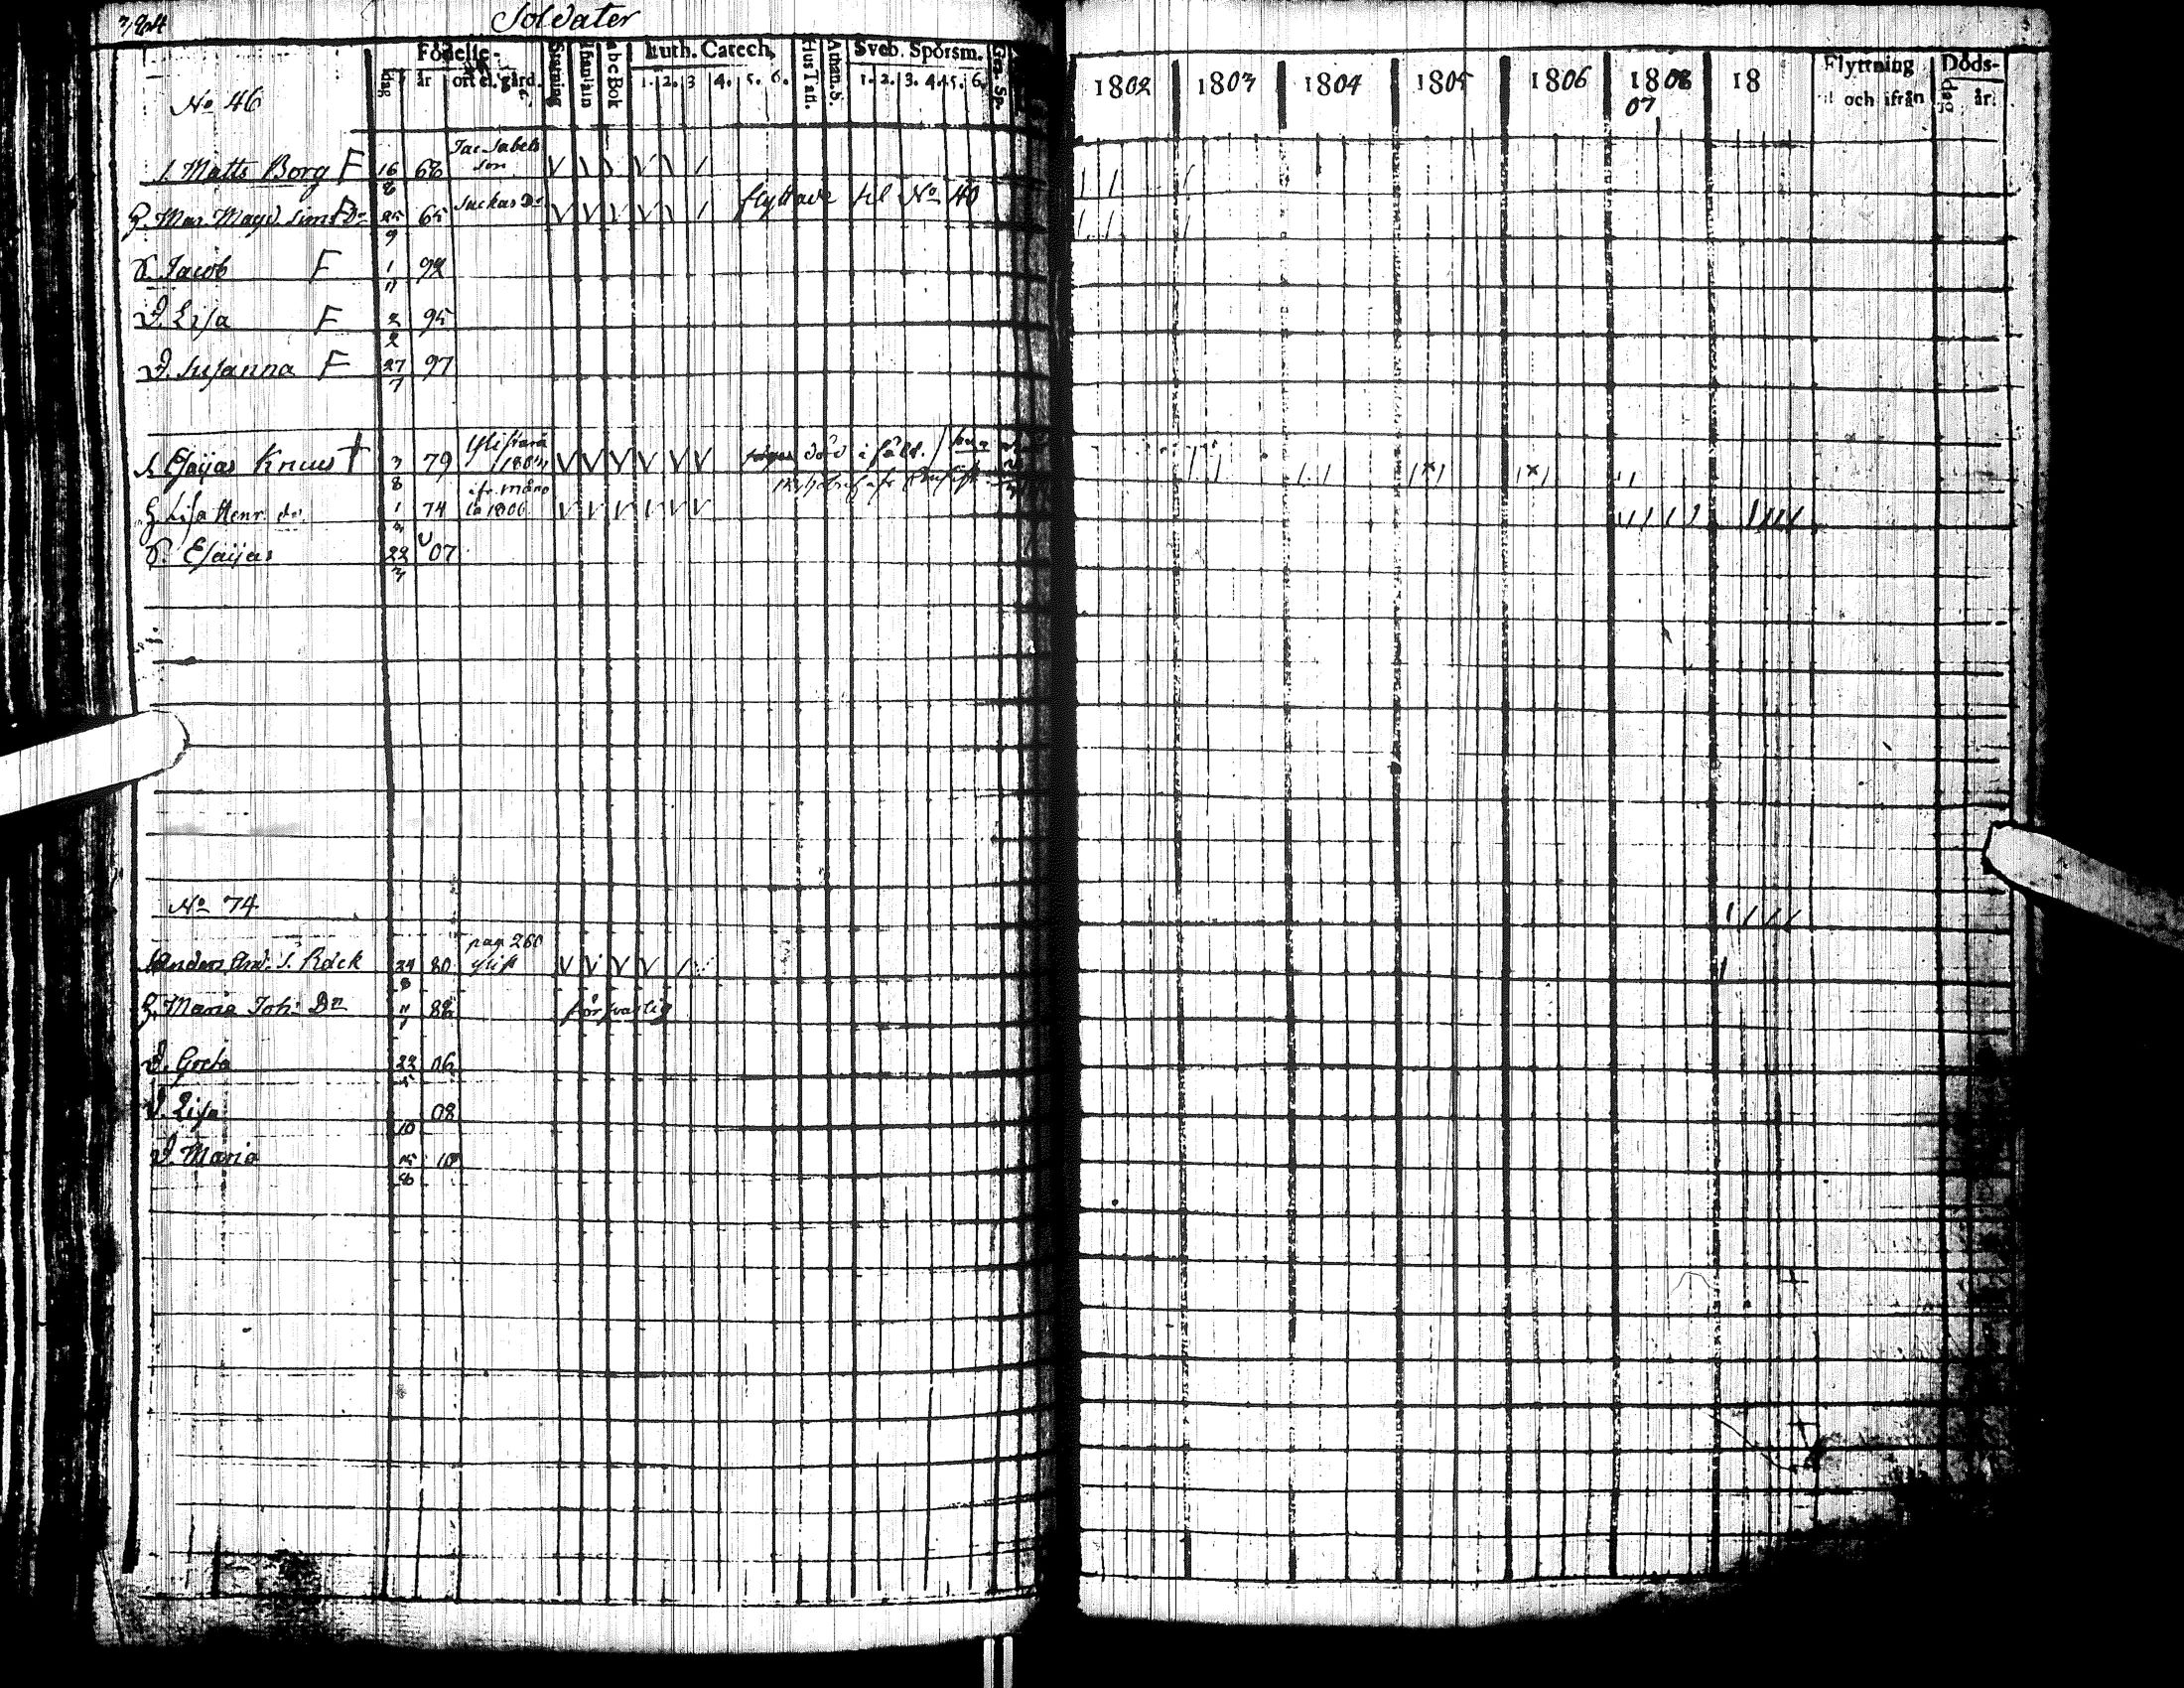 Soldater
Födelse- Luth. Catech. Sveb. Spörsm.
dag år ort el. gård. abc Bok 1. 2. 3 4. 5. 6. Hus Tafl. Athan. S. 1. 2. 3. 4. 5. 6. 1802 1803 1804 1805 1806 1808 18 Flyttning Döds-
No 46 07 och ifrån dag år.
S. Matts Borg F 16/8 68 Jac Sabels son
Mar. Magd. Sims Dr 25/9 65 Suckas Dr flyttade til No 40
S. Jacob F 1/11 92
D. Lisa F 2/2 95
D. Susanna F 27/7 97
S. Esaijas Knuus † 3/8 79 död i fält.
H. Lisa Henr. dr. 1 74 1806
S. Esaijas 22/3 07
No 74
pag 260
Anders And. S. Räck 24/8 80
H. Maria Joh. Dr 11 88 försvarlig
D. Greta 22 06
D. Lisa 10 08
D. Maria 15/8 10